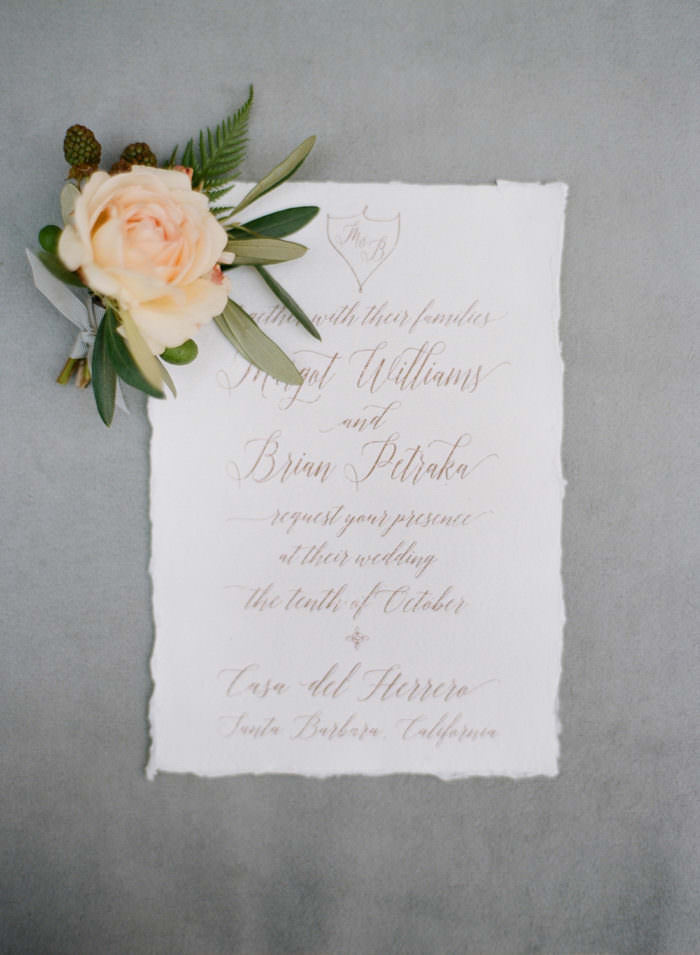 M & B
together with their families
Margot Williams
and
Brian Petraka
request your presence
at their wedding
the tenth of October
Casa del Herrero
Santa Barbara, California